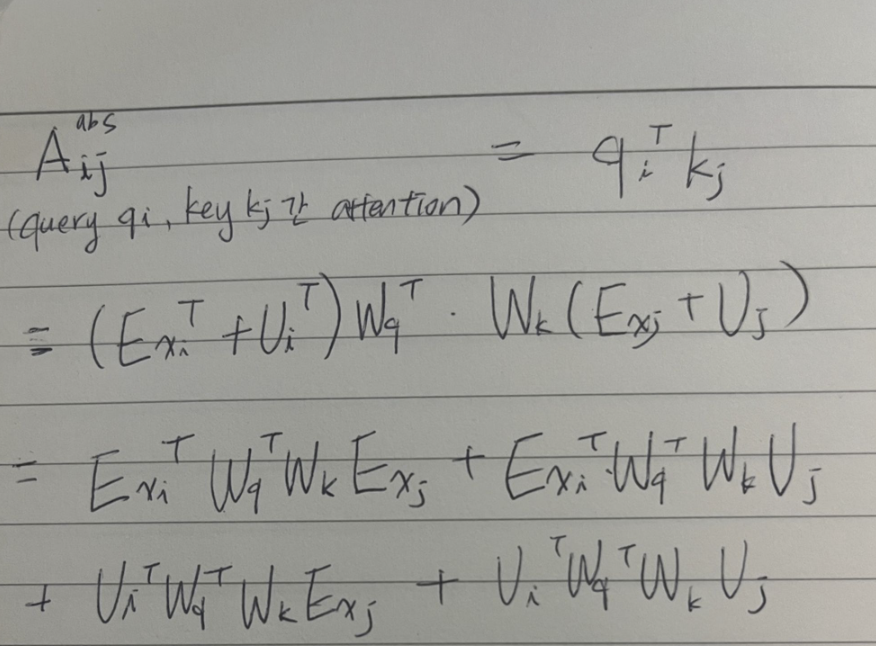 A_{ij}^{abs} = q_i^T k_j
(query qi, key kj 간 attention)
= (E_{x_i}^T + U_i^T) W_q^T · W_k (E_{x_j} + U_j)
= E_{x_i}^T W_q^T W_k E_{x_j} + E_{x_i}^T W_q^T W_k U_j
+ U_i^T W_q^T W_k E_{x_j} + U_i^T W_q^T W_k U_j